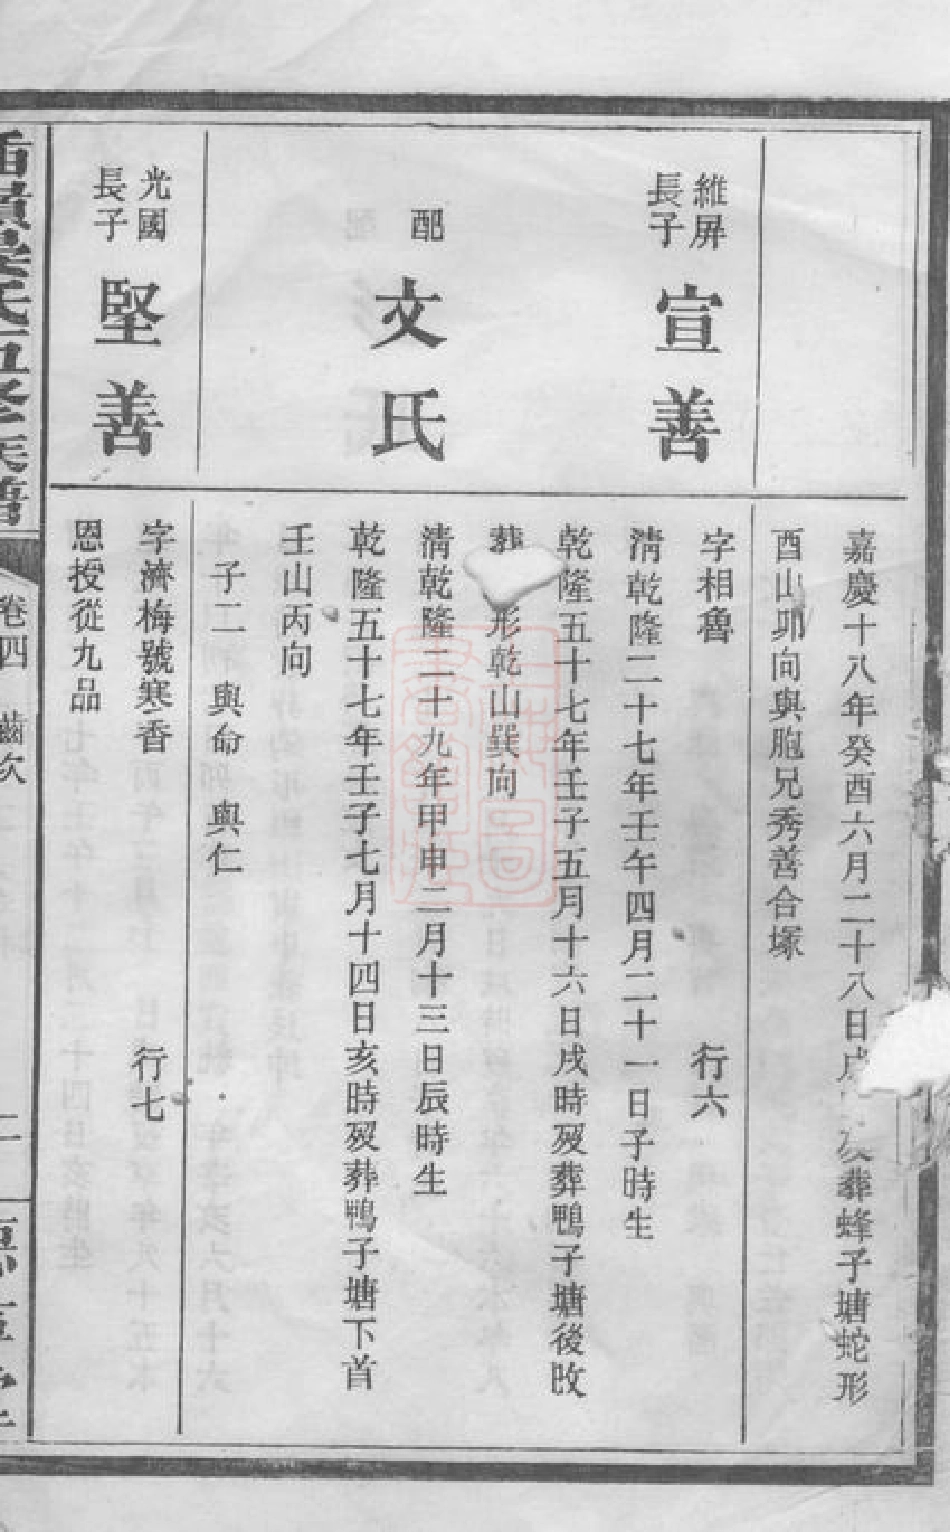 嘉慶十八年癸酉六月二十八日戌葬蜂子塘蛇形
酉山卯向與胞兄秀善合塚
維屏
長子
宣善
字相魯 行六
清乾隆二十七年壬午四月二十一日子時生
乾隆五十七年壬子五月十六日戌時歿葬鴨子塘後
葬形乾山巽向
配
文氏
清乾隆二十九年甲申二月十三日辰時生
乾隆五十七年壬子七月十四日亥時歿葬鴨子塘下首
壬山丙向
子二 與命 與仁
光國
長子
堅善
字濟梅號寒香 行七
恩授從九品
氏五修族譜
卷四 齒次